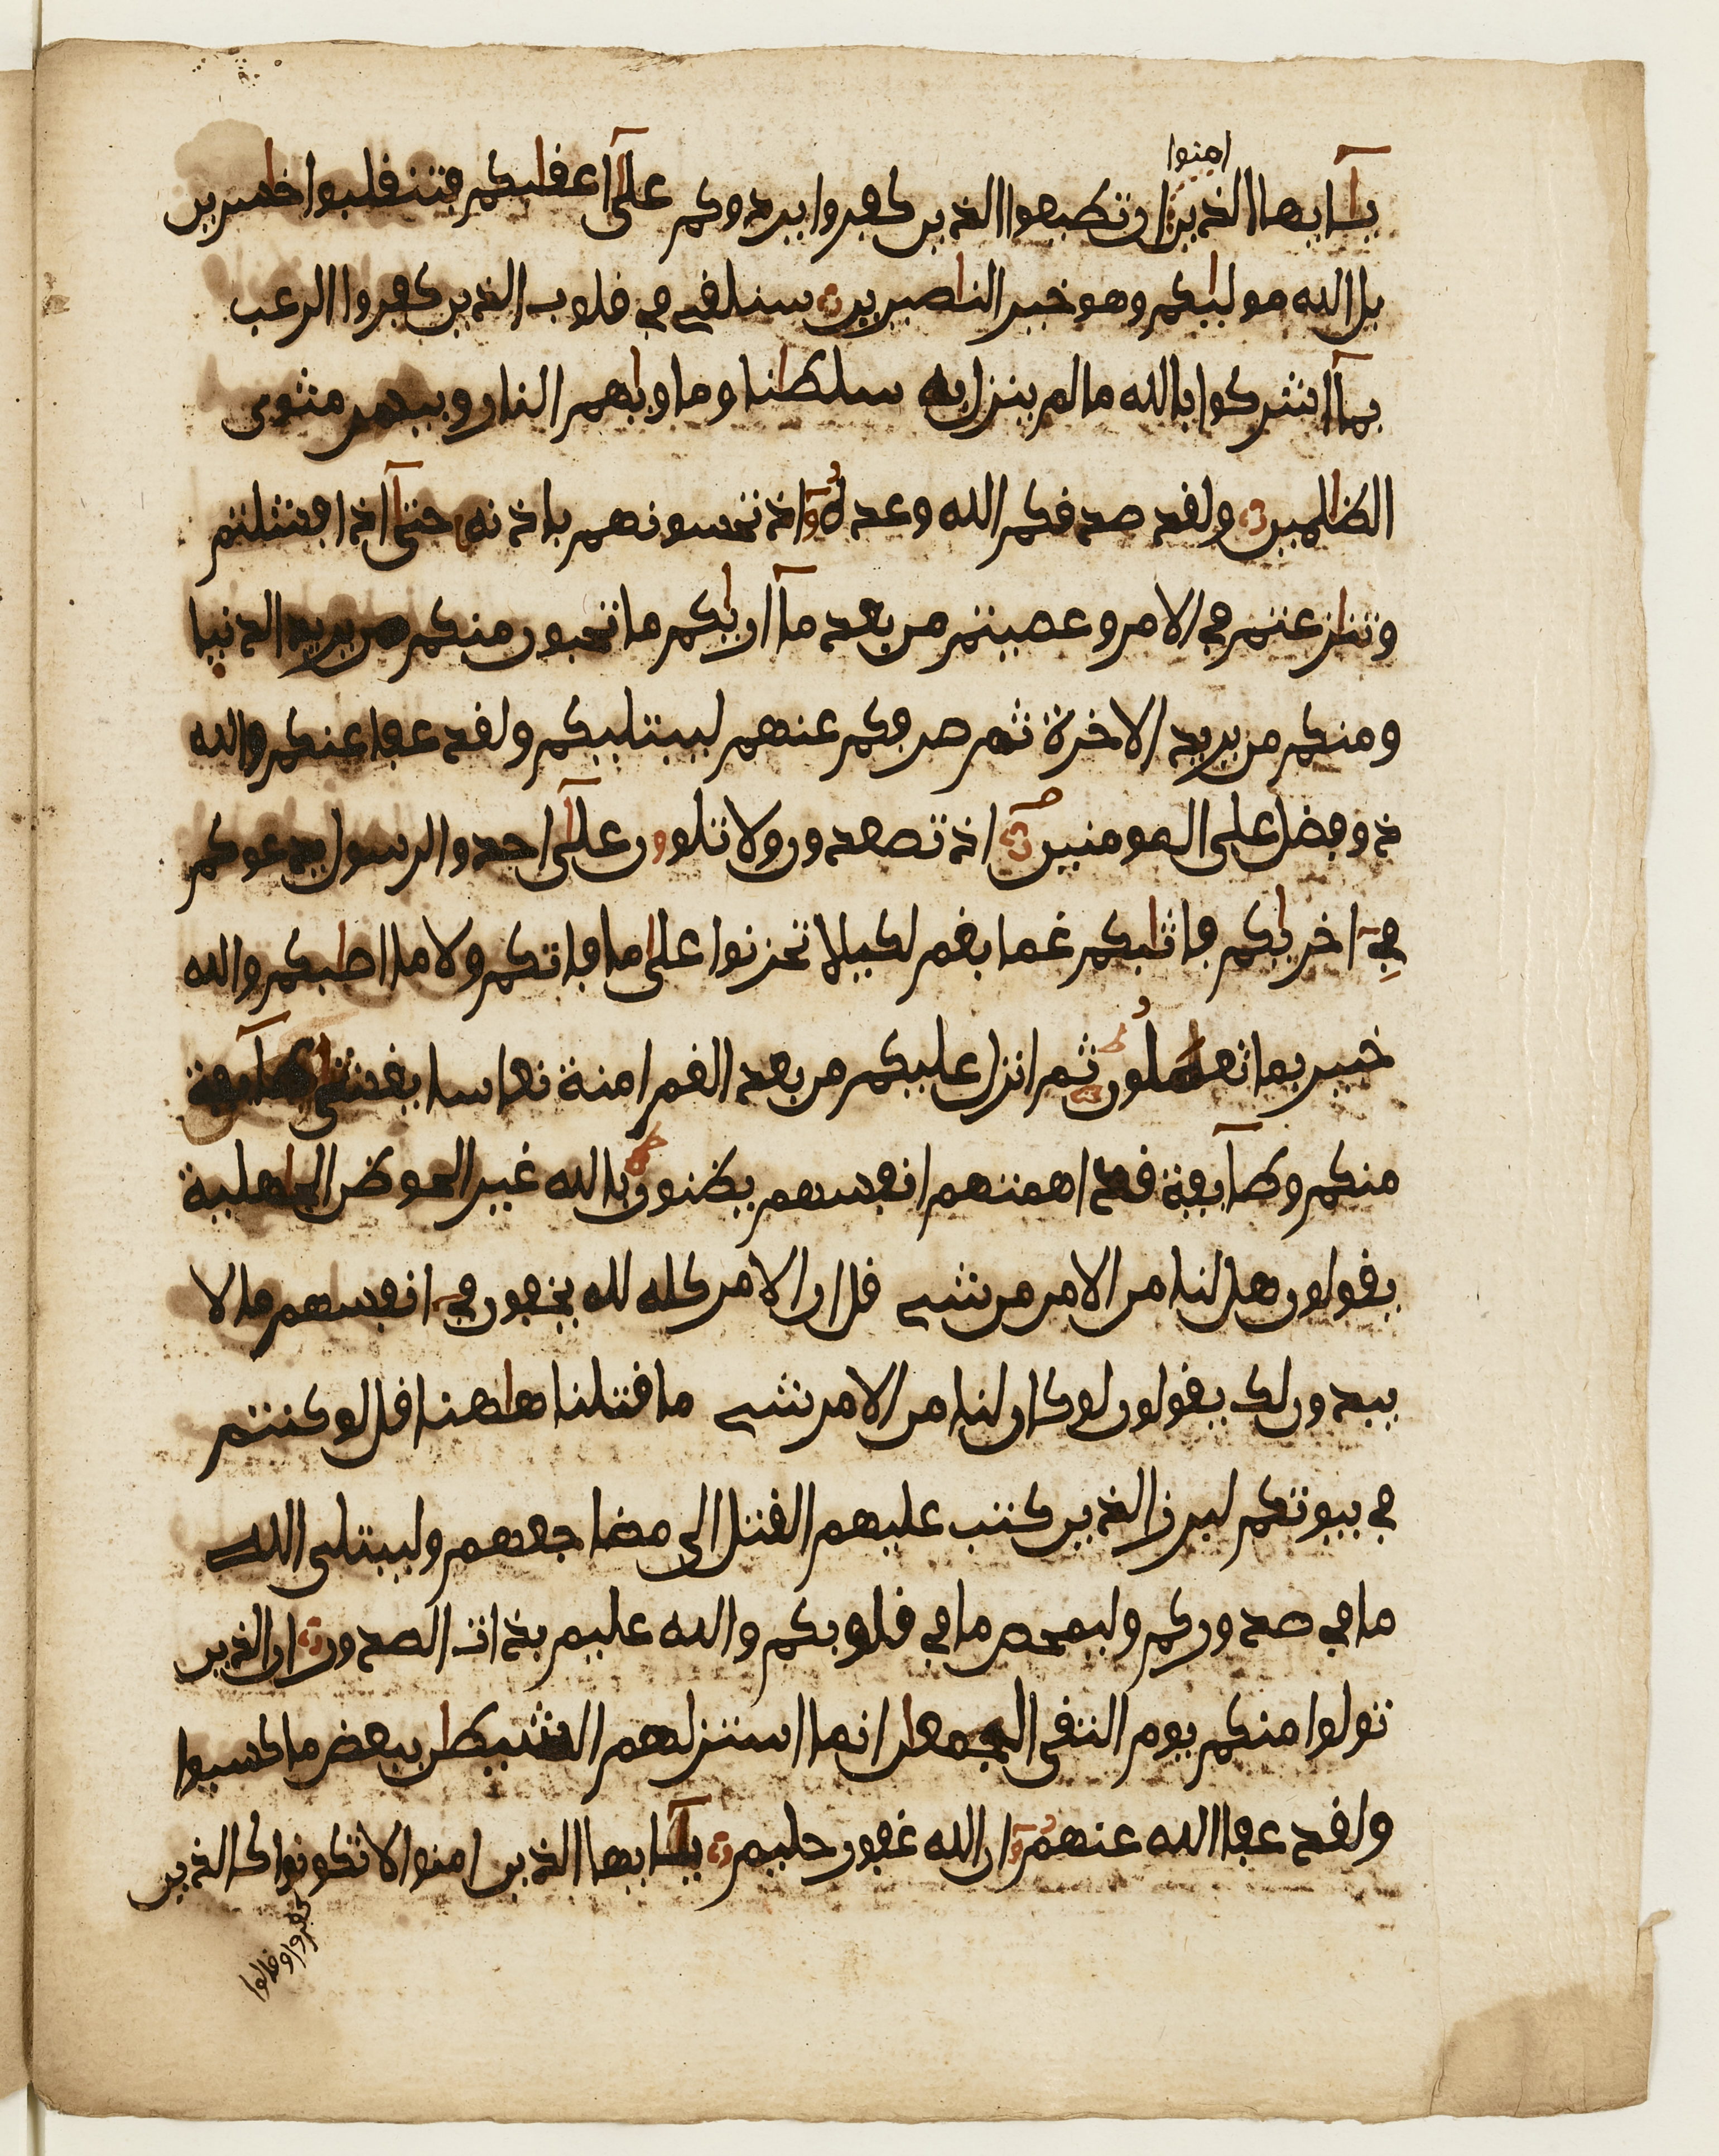 امنوا
يـايها الذين ان تطيعوا الذين كفروا يردوكم على اعقابكم فتنقلبوا خاسرين
بل الله موليكم وهو خير الناصرين سنلقي في قلوب الذين كفروا الرعب
بما اشركوا بالله ما لم ينزل به سلطنا وماويهم النار وبيس مثوى
الظلمين ولقد صدقكم الله وعده اذ تحسونهم باذنه حتى اذا فشلتم
وتنازعتم في الامر وعصيتم من بعد ما اريكم ما تحبون منكم من يريد الدنيا
ومنكم من يريد الاخرة ثم صرفكم عنهم ليبتليكم ولقد عفا عنكم والله
ذو فضل على المومنين اذ تصعدون ولا تلوون على احد والرسول يدعوكم
في اخريكم فاثابكم غما بغم لكيلا تحزنوا على ما فاتكم ولا ما اصابكم والله
خبير بما تعملون ثم انزل عليكم من بعد الغم امنة نعاسا يغشى طايفة
منكم وطايفة قد اهمتهم انفسهم يظنون بالله غير الحق ظن الجاهلية
يقولون هل لنا من الامر من شيء قل ان الامر كله لله يخفون في انفسهم ما لا
يبدون لك يقولون لو كان لنا من الامر شيء ما قتلنا هاهنا قل لو كنتم
في بيوتكم لبرز الذين كتب عليهم القتل الى مضاجعهم وليبتلي الله
ما في صدوركم وليمحص ما في قلوبكم والله عليم بذات الصدور ان الذين
تولوا منكم يوم التقى الجمعان انما استزلهم الشيطن ببعض ما كسبوا
ولقد عفا الله عنهم ان الله غفور حليم يـايها الذين امنوا لا تكونوا كالذين
كفروا وقالوا